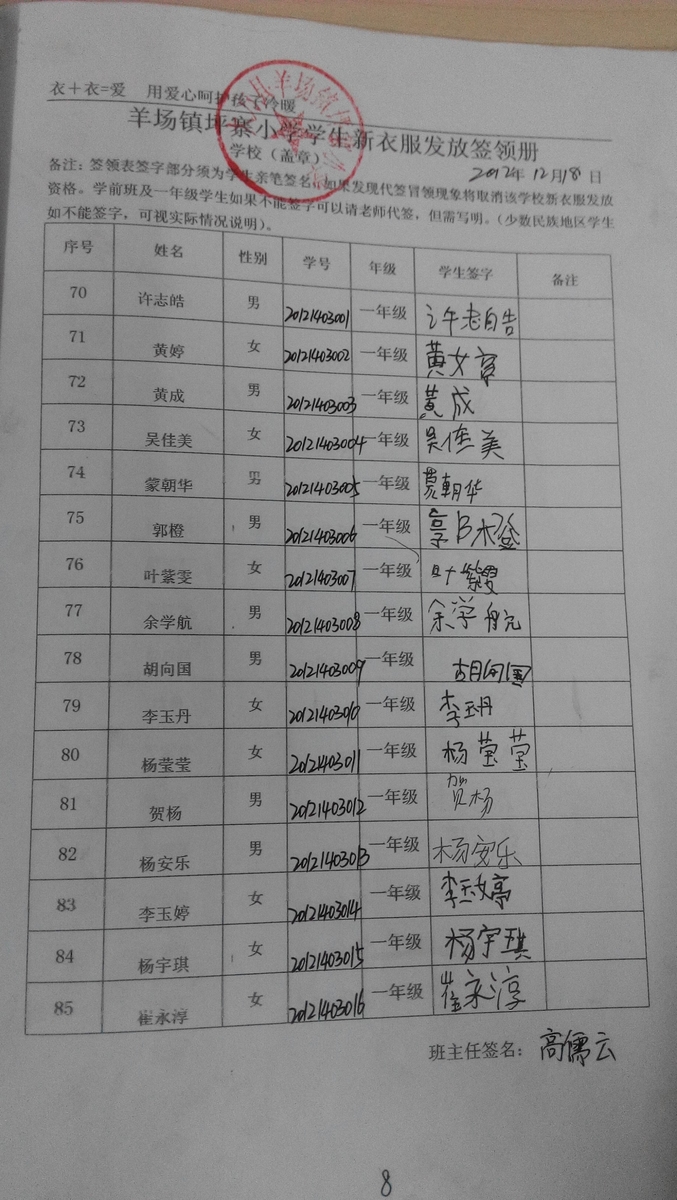 衣＋衣=爱 用爱心呵护孩子冷暖
羊场镇坪寨小学学生新衣服发放签领册
学校（盖章）
2012年12月18日
备注：签领表签字部分须为学生亲笔签名，如果发现代签冒领现象将取消该学校新衣服发放
资格。学前班及一年级学生如果不能签字可以请老师代签，但需写明。（少数民族地区学生
如不能签字，可视实际情况说明）。
序号 姓名 性别 学号 年级 学生签字 备注
70 许志皓 男 20121403001 一年级 许志皓
71 黄婷 女 20121403002 一年级 黄婷
72 黄成 男 20121403003 一年级 黄成
73 吴佳美 女 20121403004 一年级 吴佳美
74 蒙朝华 男 20121403005 一年级 蒙朝华
75 郭橙 男 20121403006 一年级 郭橙
76 叶紫雯 女 20121403007 一年级 叶紫雯
77 余学航 男 20121403008 一年级 余学航
78 胡向国 男 20121403009 一年级 胡向国
79 李玉丹 女 20121403010 一年级 李玉丹
80 杨莹莹 女 20121403011 一年级 杨莹莹
81 贺杨 男 20121403012 一年级 贺杨
82 杨安乐 男 20121403013 一年级 杨安乐
83 李玉婷 女 20121403014 一年级 李玉婷
84 杨宇琪 女 20121403015 一年级 杨宇琪
85 崔永淳 女 20121403016 一年级 崔永淳
班主任签名：高儒云
8